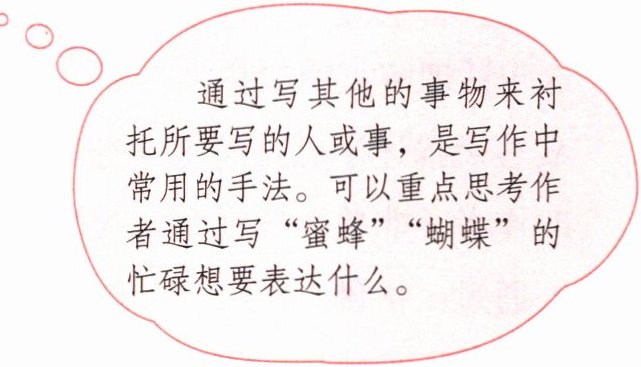 通过写其他的事物来衬
托所要写的人或事，是写作中
常用的手法。可以重点思考作
者通过写“蜜蜂”“蝴蝶”的
忙碌想要表达什么。